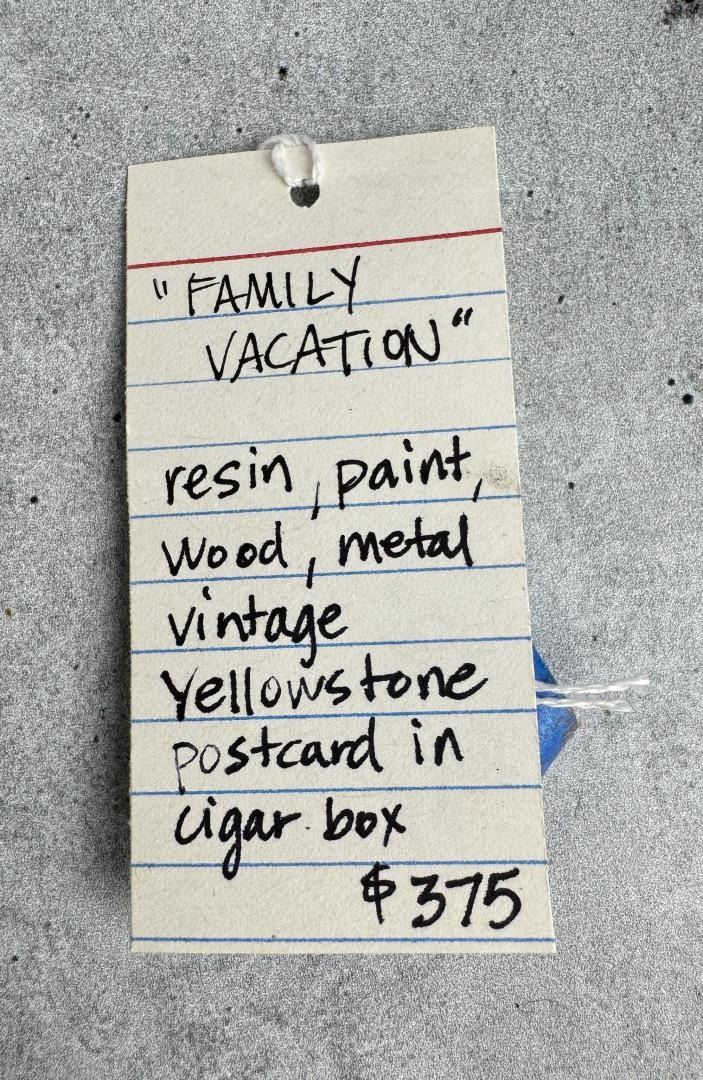 "FAMILY
VACATION"
resin, paint,
wood, metal
vintage
Yellowstone
postcard in
cigar box
$375